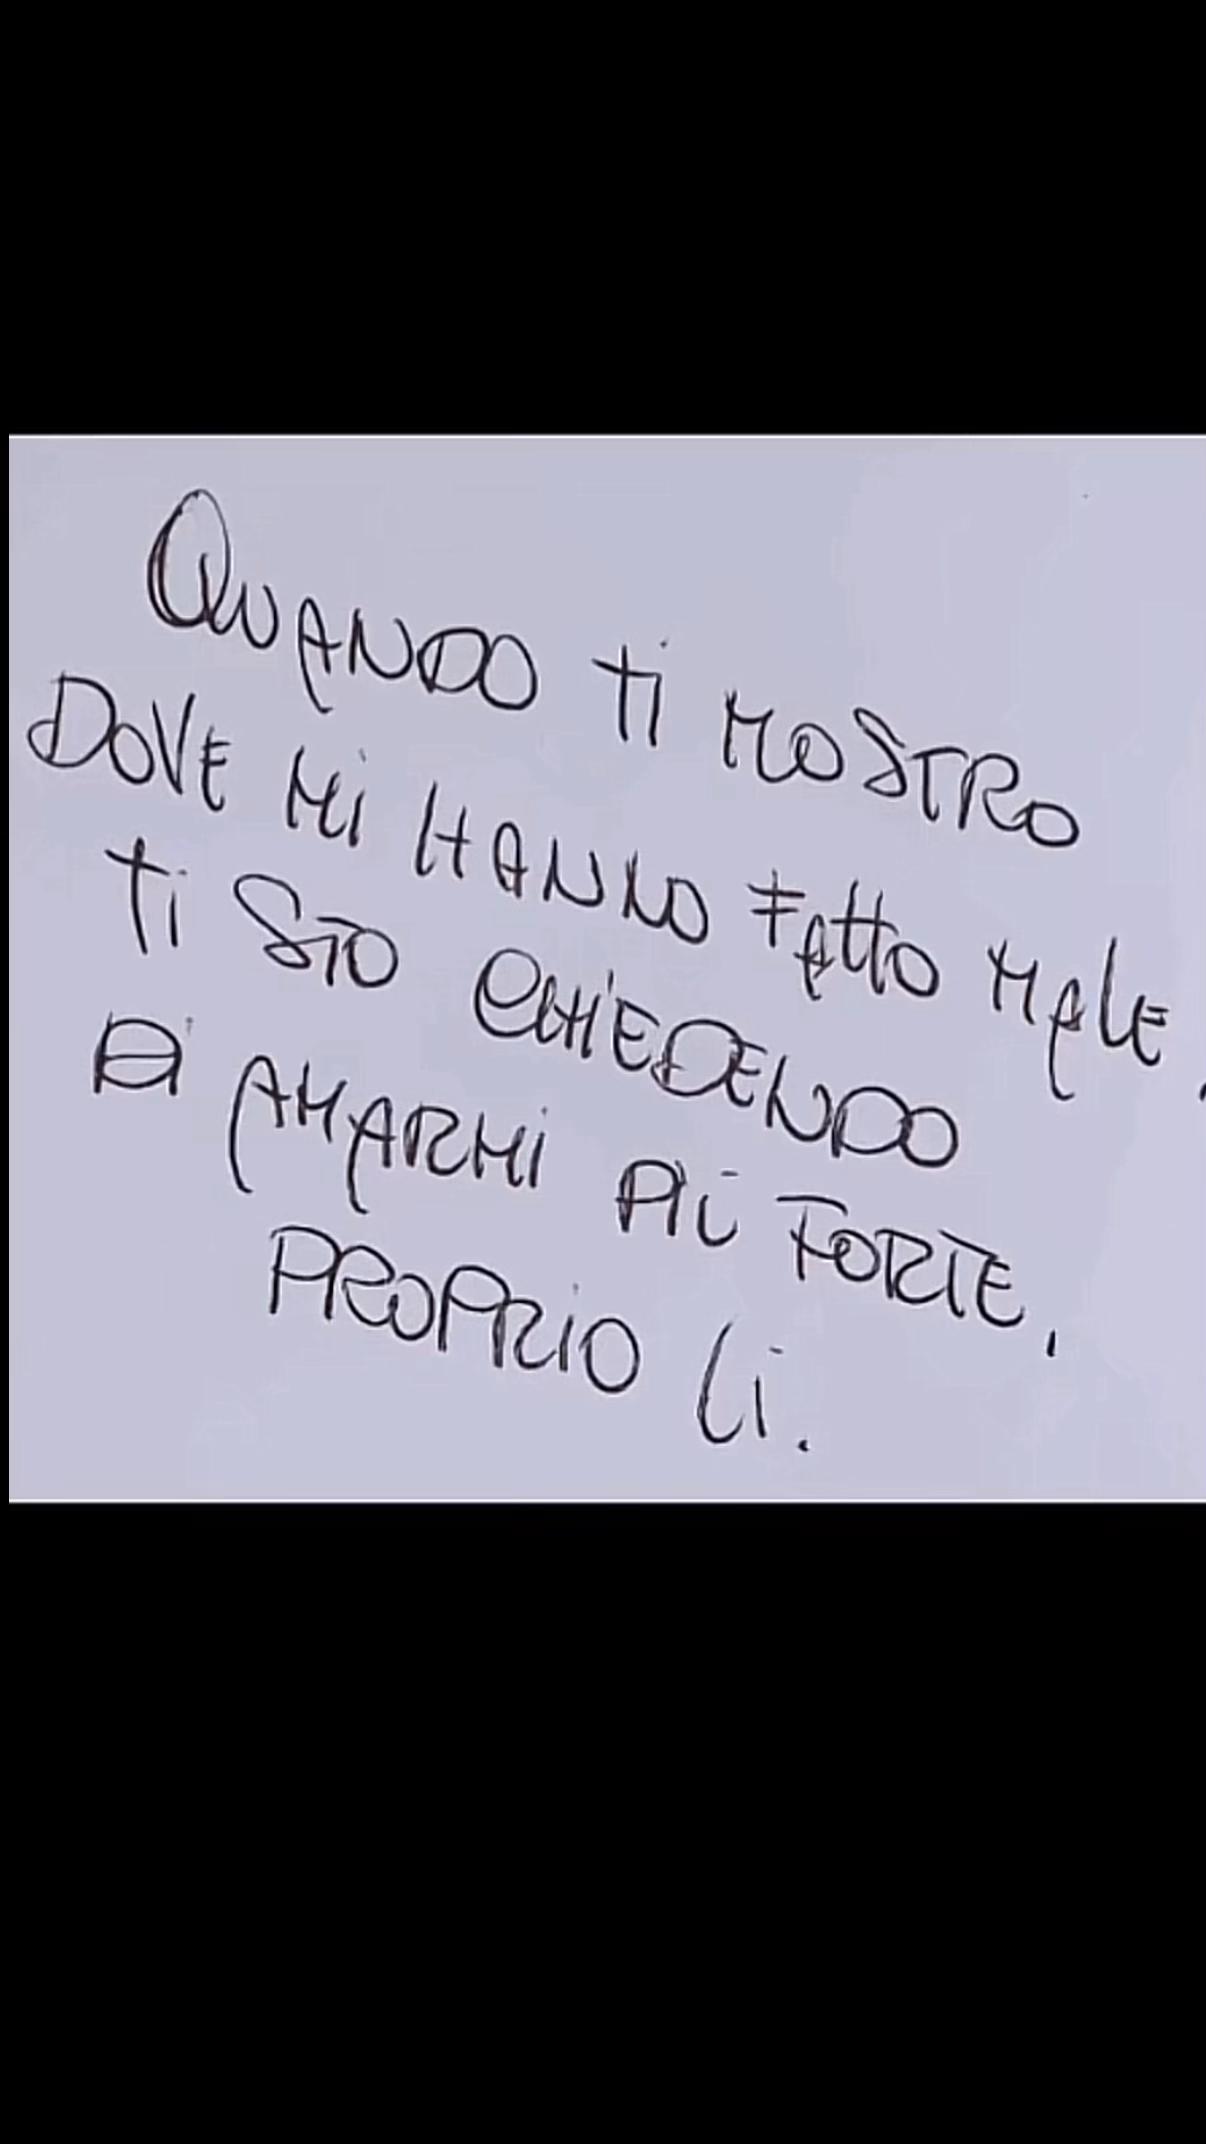 QUANDO Ti MOSTRO
DOVE Mi HANNO FATTO MALE,
Ti STO CHiEDENDO
Di AMARMi PiÙ FORTE,
PROPRiO Lì.